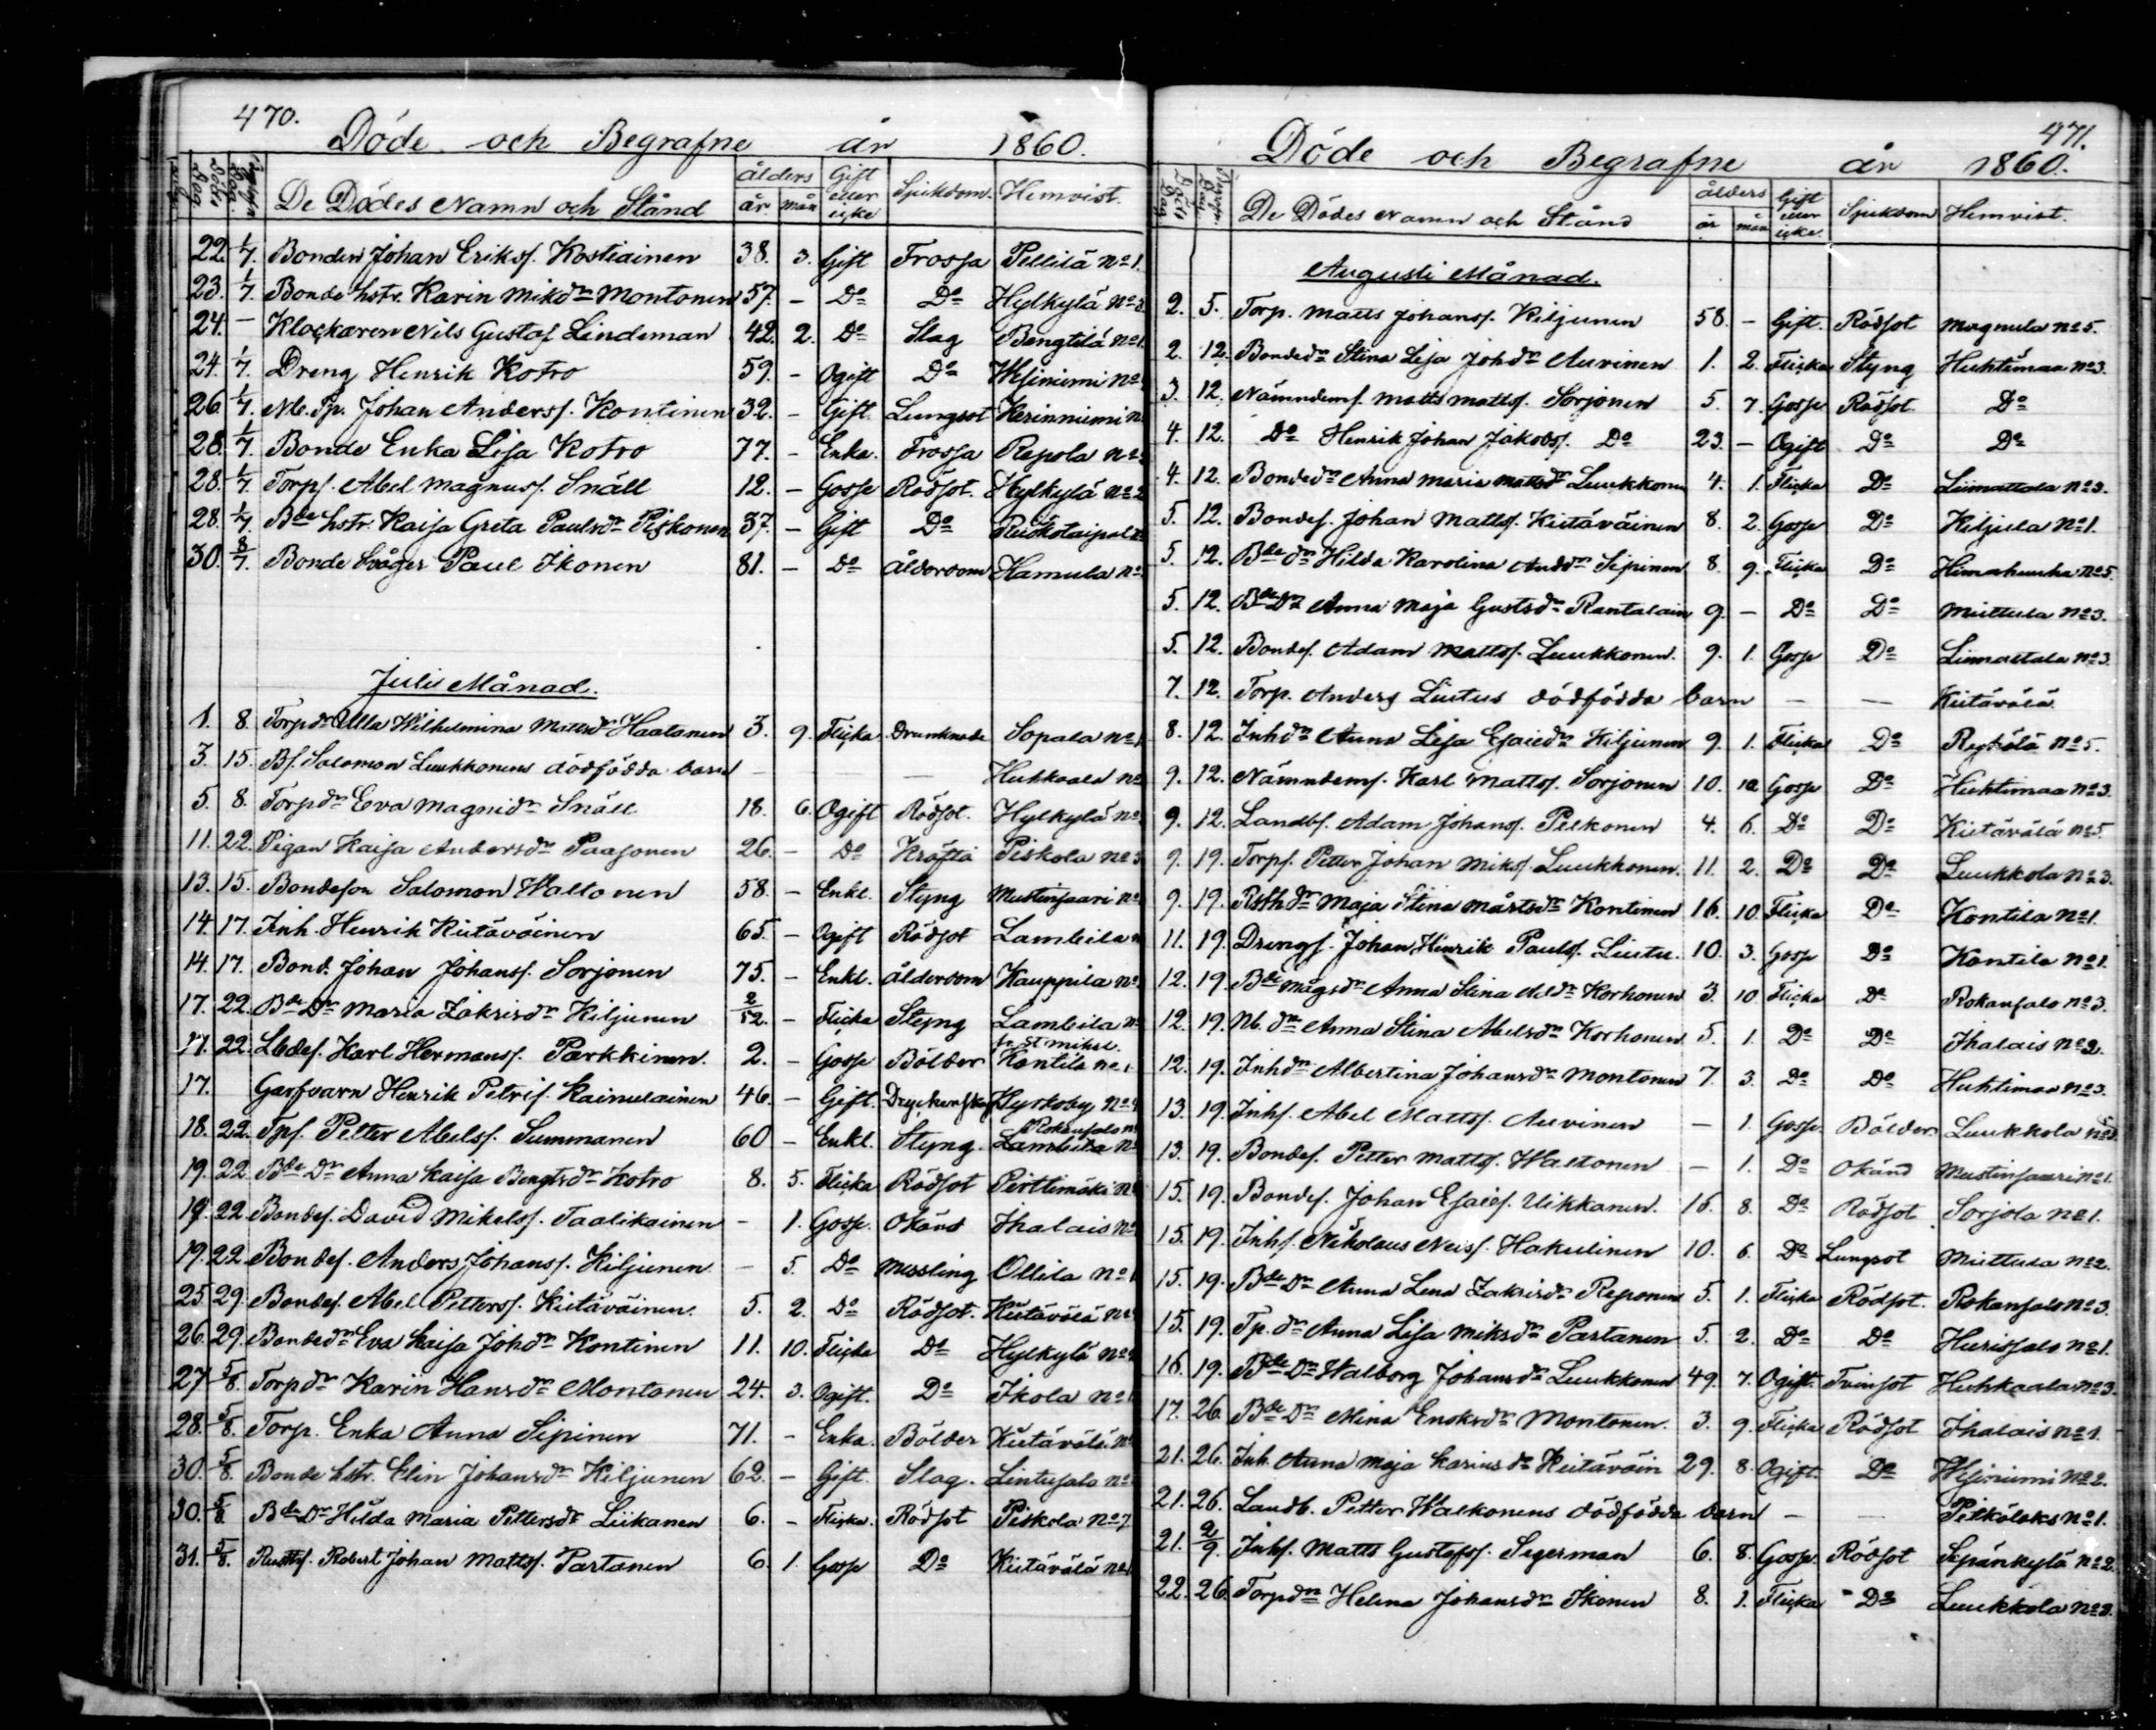 470.
Döde och Begrafne år 1860.
Döde Dag Begrafn. Dag De Dödes Namn och Stånd ålders år mån Gift eller icke Sjukdom. Hemvist.
22. 1/7. Bonden Johan Eriksf. Kostiainen 38. 3. Gift Frossa Pellilä No 1.
23. 1/7. Bonde hstr. Karin Mikdr Montonen 57. - Do Do Hylkylä No
24. - Klockaren Nils Gustaf Lindeman 42. 2. Do Slag Bengtilä No 1.
24. 1/7. Dreng Henrik Kotro 59. - Ogift Do Wehriniemi No
26. 1/7. Johan Andersf. Kontinen 32. - Gift. Lungsot Kerinniemi No
28. 1/7. Bonde Enka Lisa Kotro 77. - Enka. Frossa Repola No
28. 1/7. Torpf. Abel Magnusf. Snäll 12. - Gosse Rödsot. Hylkylä No 2
28. 1/7. Bde hstr. Kaisa Greta Paulsdr Piskonen 37. - Gift Do
30. 8/7. Bonde Svåger Paul Ikonen 81. - Do ålderdom Hamula No
Juli Månad.
1. 8. Torpdr Ulla Wilhelmina Mattsdr Haatanen 3. 9. Flicka Drunknade Sopala No 1
3. 15. Bf. Salomon Luukkonens dödfödda barn - - - Huhkaala No
5. 8. Torpdr Eva Magnidr Snäll 18. 6. Ogift Rödsot. Hylkylä No
11. 22. Pigan Kaisa Andersdr Paasonen 26. - Do Kräfta Piskola No 3
13. 15. Bondeson Salomon Waltonen 58. - Enkl. Styng Mustinsaari No
14. 17. Inh. Henrik Kiitäväinen 65. - Ogift Rödsot Lambila
14. 17. Bond. Johan Johansf. Sorjonen 75. - Enkl. ålderdom Kauppila No
17. 22. Bde Dr Maria Zakrisdr Kiljunen 2/52. - Flicka Styng Lambila No
17. 22. Lbdef. Karl Hermansf. Parkkinen. 2. - Gosse Bölder fr. St. Mikel. Kontila No 1
17. Garfvarn Henrik Petrif. Kainulainen 46. - Gift. Dryckenskap Kyrkoby No 4
18. 22. Tpf. Petter Abelsf. Summanen 60 - Enkl. Styng. Rokansalo No Lambila No
19. 22. Bde Dr Anna Kaisa Bengtsdr Kotro 8. 5. Flicka Rödsot Pirttimäki No
19. 22. Bondef. David Mikelsf. Taalikainen - 1. Gosse. Okänd Ihalais No
19. 22. Bondef. Anders Johansf. Kiljunen - 5. Do Messling Ollila No 1
25. 29. Bondef. Abel Pettersf. Kiitäväinen. 5. 2. Do Rödsot. Kiitävälä No
26. 29. Bondedr Eva Kaisa Johdr Kontinen 11. 10. Flicka Do Hylkylä No
27 5/8. Torpdr Karin Hansdr Montonen 24. 3. Ogift. Do Ikola No 1
28. 5/8. Torp. Enka Anna Sipinen 71. - Enka. Bölder Kiitävälä No
30. 5/8. Bonde hstr. Elin Johansdr Kiljunen 62. - Gift. Slag. Lintusalo No
30. 5/8. Bde Dr Hilda Maria Pettersdr Liikanen 6. - Flicka. Rödsot Piskola No 7
31. 5/8. Robert Johan Mattsf. Partanen 6. 1. Gosse Do Kiitävälä No
471.
Döde och Begrafne år 1860.
Döde Dag Begrafn. Dag De Dödes Namn och Stånd ålders år mån Gift eller icke Sjukdom Hemvist.
Augusti Månad.
2. 5. Torp. Matts Johansf. Kiljunen 58. - Gift. Rödsot Magnula No 5.
2. 12. Bondedr Stina Lisa Johdr Auvinen 1. 2. Flicka Styng Huhtimaa No 3.
3. 12. Nämndemf. Matts Mattsf. Sorjonen 5. 7. Gosse Rödsot Do
4. 12. Do Henrik Johan Jakobsf. Do 23. - Ogift Do Do
4. 12. Bondedr Anna Maria Mattsdr Luukkonen 4. 1. Flicka Do Liimattala No 3.
5. 12. Bondef. Johan Mattsf. Kiitäväinen 8. 2. Gosse Do Kiljula No 1.
5. 12. Bde dr Hilda Karolina Anddr Sipinen 8. 9. Flicka Do Himahuuha No 5.
5. 12. Bde Dr Anna Maja Gustsdr Rantalain 9. - Do Do Miettula No 3.
5. 12. Bondef. Adam Mattsf. Luukkonen. 9. 1. Gosse Do Liimattala No 3.
7. 12. Torp. Anders Liutus dödfödda barn - - Kiitävälä
8. 12. Inhdr Anna Lisa Esaiedr Kiljunen 9. 1. Flicka Do No 5.
9. 12. Nämndemf. Karl Mattsf. Sorjonen 10. 10 Gosse Do Huhtimaa No 3.
9. 12. Landbf. Adam Johansf. Pelkonen 4. 6. Do Do Kiitävälä No 5.
9. 19. Torpf. Petter Johan Miksf. Luukkonen. 11. 2. Do Do Luukkola No 3.
9. 19. Maja Stina Mårtsdr Kontinen 16. 10. Flicka Do Kontila No 1.
11. 19. Drengf. Johan Henrik Paulsf. Liutu. 10. 3. Gosse Do Kontila No 1.
12. 19. Bde mågsdr Anna Stina Korhonen 3. 10. Flicka Do Rokansalo No 3.
12. 19. Nb. dr Anna Stina Abelsdr Korhonen 5. 1. Do Do Ihalais No 2.
12. 19. Inhdr Albertina Johansdr Montonen 7. 3. Do Do Huhtimaa No 3.
13. 19. Inhf. Abel Mattsf. Auvinen - 1. Gosse. Bölder Luukkola No
13. 19. Bondef. Petter Mattsf. Waltonen - 1. Do Okänd Mustinsaari No 1.
15. 19. Bondef. Johan Esaief. Uikkanen. 15. 8. Do Rödsot Sorjola No 1.
15. 19. Inhf. Nikolaus Hakulinen 10. 6. Do Lungsot Miettula No 2.
15. 19. Bde Dr Anna Lena Zakrisdr Reponen 5. 1. Flicka Rödsot. Rokansalo No 3.
15. 19. Tp. dr Anna Lisa Miksdr Partanen 5. 2. Do Do Hurissalo No 1.
16. 19. Bde Dr Walborg Johansdr Luukkonen 49. 7. Ogift. Tvinsot Huhkaala No 3.
17. 26. Bde Dr Mina Enoksdr Montonen. 3. 9. Flicka Rödsot Ihalais No 1.
21. 26. Inh. Anna Maja Kiitäväin 29. 8. Ogift Do No 2.
21. 26. Landb. Petter Walkonens dödfödda barn - - No 1.
21. 2/9. Inhf. Matts Gustafsf. Segerman 6. 8. Gosse. Rödsot Sepänkylä No 2.
22. 26. Torpdr Helena Johansdr Ikonen 8. 1. Flicka Do Luukkola No